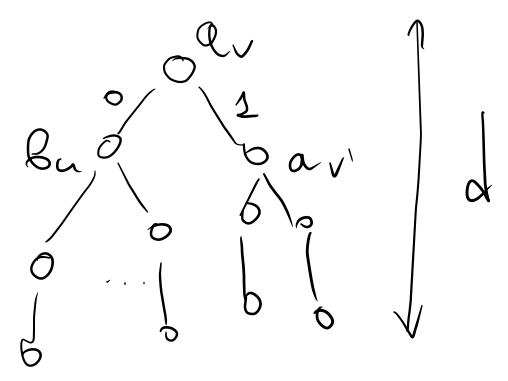 a_v
0 1
b_u a_v'
d
....